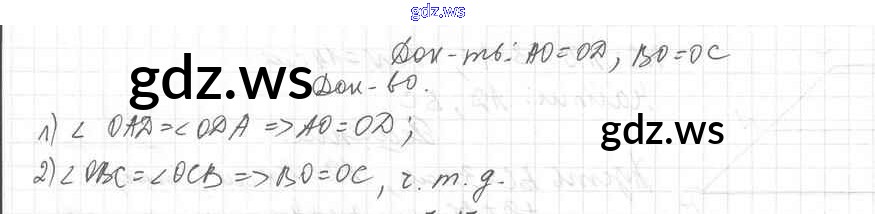 gdz.ws
Док-ть: AO=OD, BO=OC
gdz.ws
Док-во.
1) ∠ OAD=∠ODA => AO=OD;
gdz.ws
2) ∠OBC=∠OCB => BO=OC, ч.т.д.